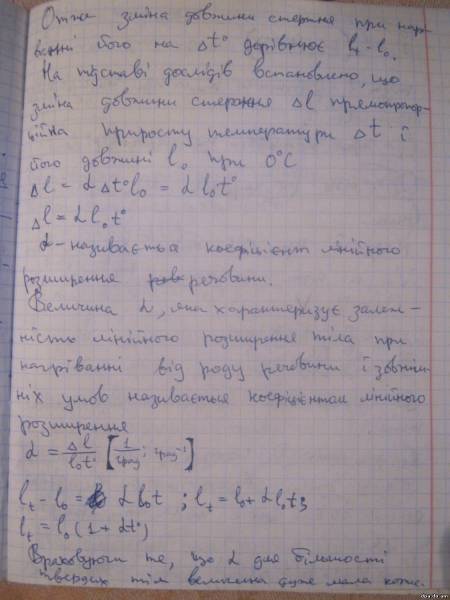 Отже зміна довжини стержня при нагр-
іванні його на Δt° дорівнює lt - l₀.
На підставі дослідів встановлено, що
зміна довжини стержня Δl прямопропор-
ційна приросту температури Δt і
його довжині l₀ при 0°C
Δl = αΔt°l₀ = αl₀t°
Δl = αl₀t°
α - називається коефіцієнт лінійного
розширення речовини.
Величина α, яка характеризує залеж-
ність лінійного розширення тіла при
нагріванні від роду речовини і зовніш-
ніх умов називається коефіцієнтом лінійного
розширення
α = Δl/l₀t° [1/град; град⁻¹]
lt - l₀ = αl₀t ; lt = l₀ + αl₀t;
lt = l₀(1 + αt°)
Враховуючи те, що α для більшості
твердих тіл величина дуже мала